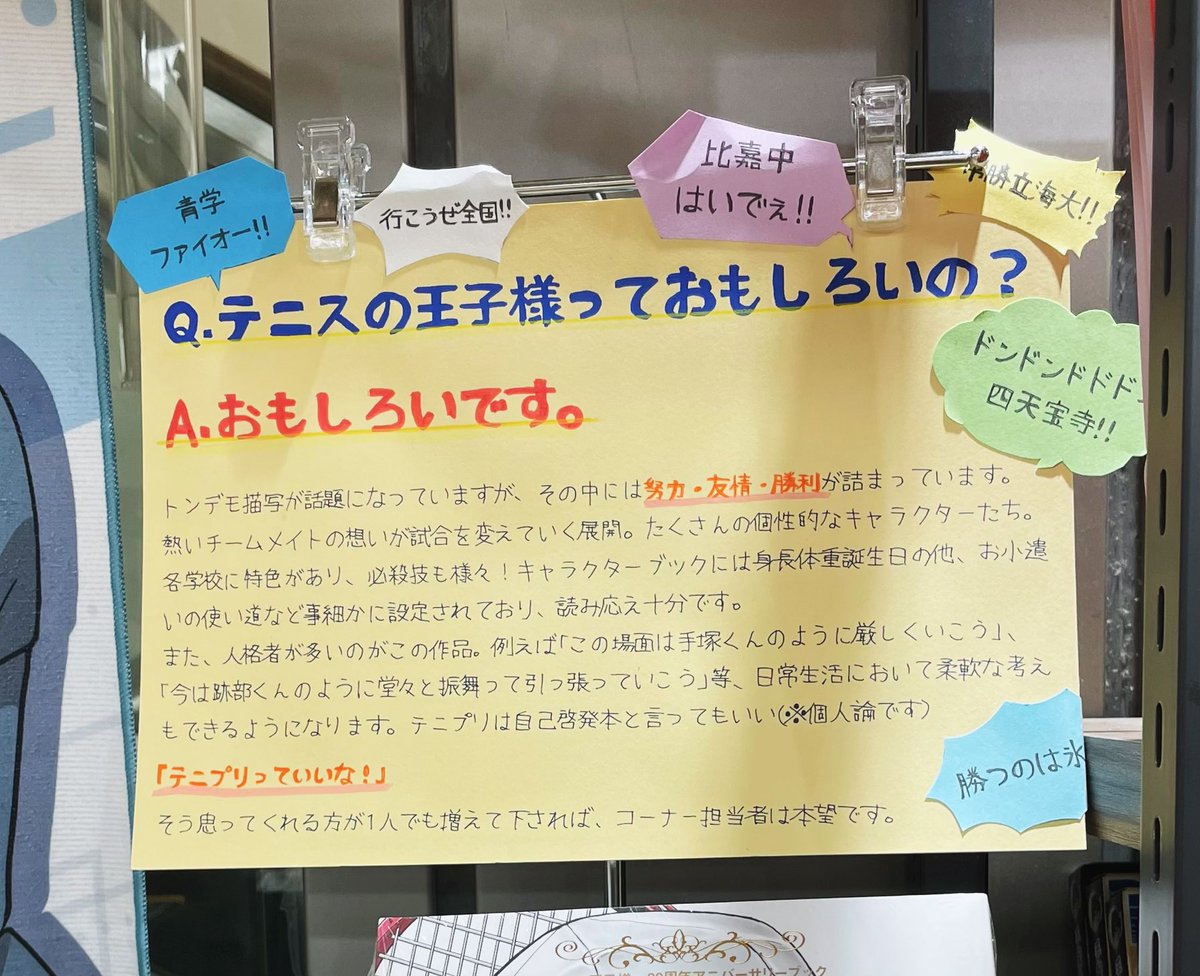 青学
ファイオー!!
行こうぜ全国!!
比嘉中
はいでぇ!!
勝立海大!!
Q.テニスの王子様っておもしろいの?
A.おもしろいです。
ドンドンドドド
四天宝寺!!
トンデモ描写が話題になっていますが、その中には努力・友情・勝利が詰まっています。
熱いチームメイトの想いが試合を変えていく展開。たくさんの個性的なキャラクターたち。
各学校に特色があり、必殺技も様々!キャラクターブックには身長体重誕生日の他、お小遣
いの使い道など事細かに設定されており、読み応え十分です。
また、人格者が多いのがこの作品。例えば「この場面は手塚くんのように厳しくいこう」、
「今は跡部くんのように堂々と振舞って引っ張っていこう」等、日常生活において柔軟な考え
もできるようになります。テニプリは自己啓発本と言ってもいい(※個人論です)
勝つのは氷
「テニプリっていいな!」
そう思ってくれる方が1人でも増えて下されば、コーナー担当者は本望です。
周年アニバーサリーブック